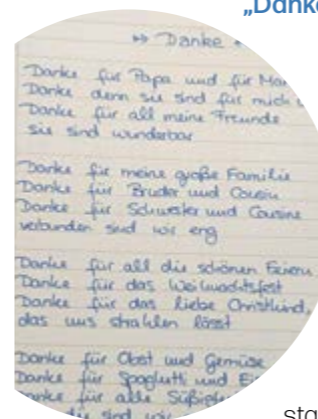 „Danke
↔ Danke
Danke für Papa und für
Danke denn sie sind für mich
Danke für all meine Freunde
sie sind wunderbar
Danke für meine große Familie
Danke für Bruder und Cousin
Danke für Schwester und Cousine
verbunden sind wir eng
Danke für all die schönen Feiern
Danke für das Weihnachtsfest
Danke für das liebe Christkind,
das uns strahlen lässt
Danke für Obst und Gemüse
Danke für Spaghetti und
für alle
sind wir